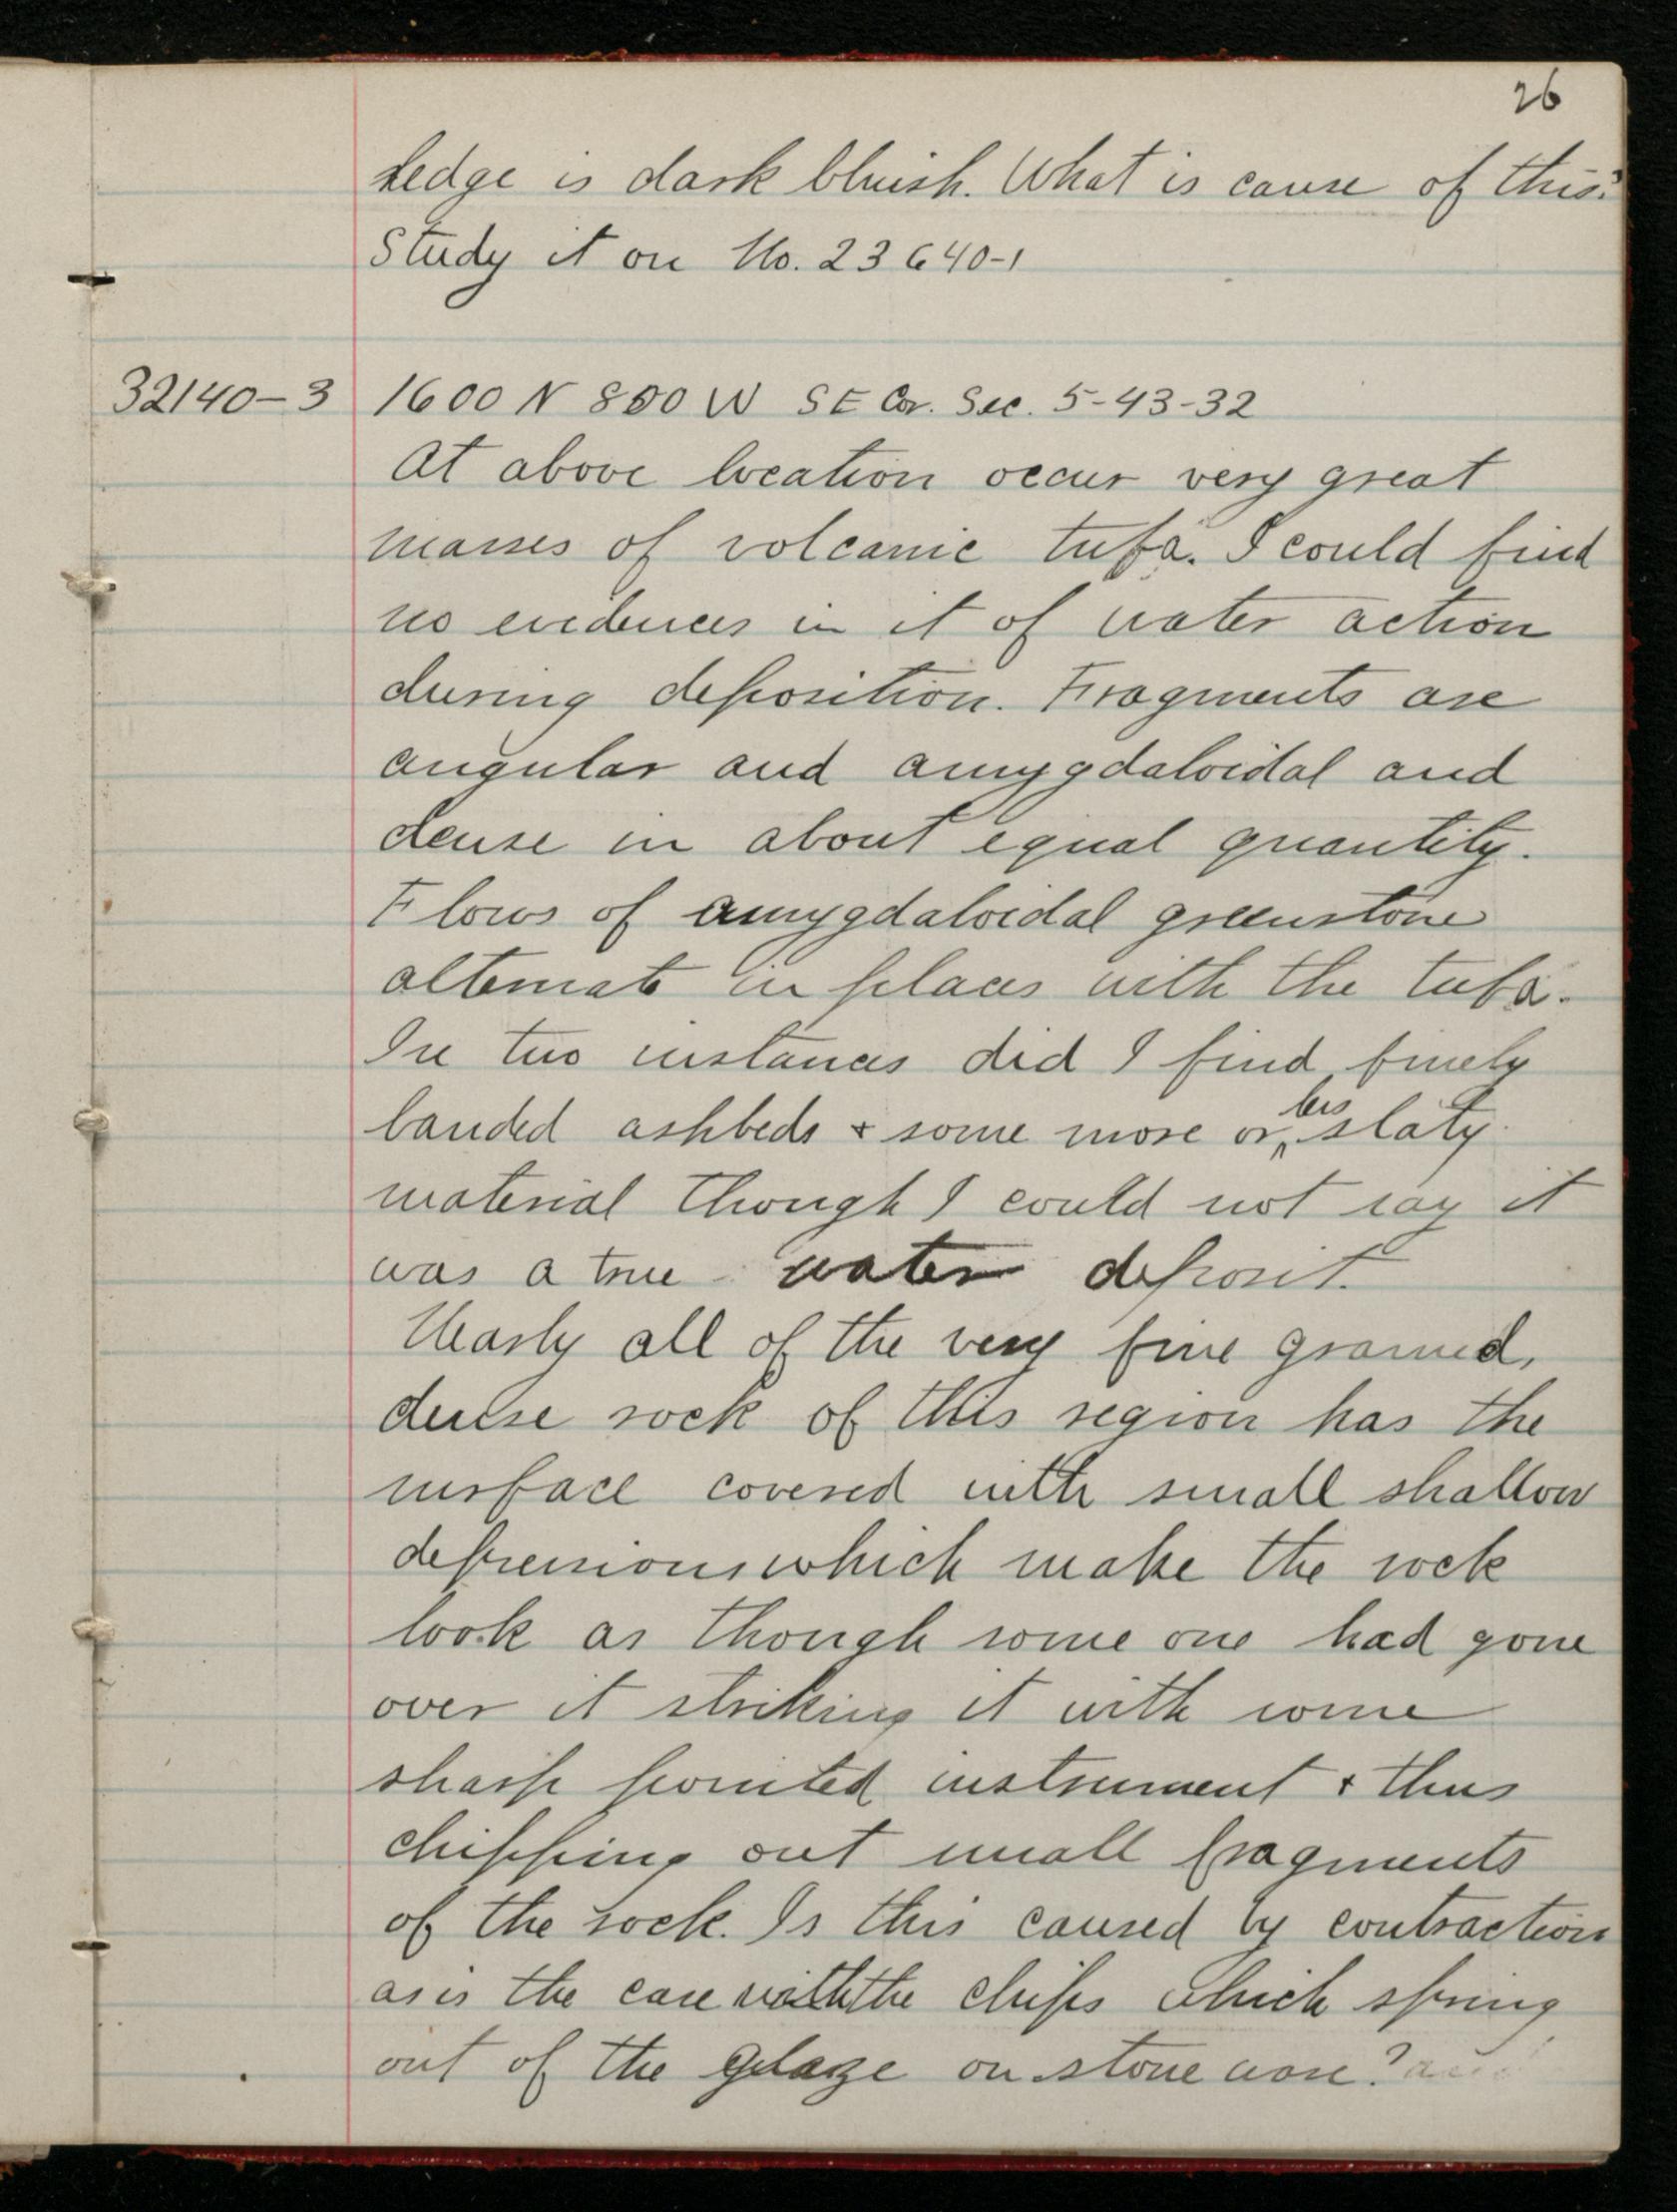 26
ledge is dark bluish. What is cause of this?
Study it on No. 23640-1
32140-3 1600 N 800 W SE Cor. Sec. 5-43-32
At above location occur very great
masses of volcanic tufa. I could find
no evidences in it of water action
during deposition. Fragments are
angular and amygdaloidal and
dense in about equal quantity.
Flows of amygdaloidal greenstone
alternate in places with the tufa.
In two instances did I find finely
banded ashbeds + some more or less slaty
material though I could not say it
was a true water deposit.
Nearly all of the very fine grained,
dense rock of this region has the
surface covered with small shallow
depressions which make the rock
look as though some one had gone
over it striking it with some
sharp pointed instrument + thus
chipping out small fragments
of the rock. Is this caused by contraction
as is the case with the chips which spring
out of the glaze on stone ware?